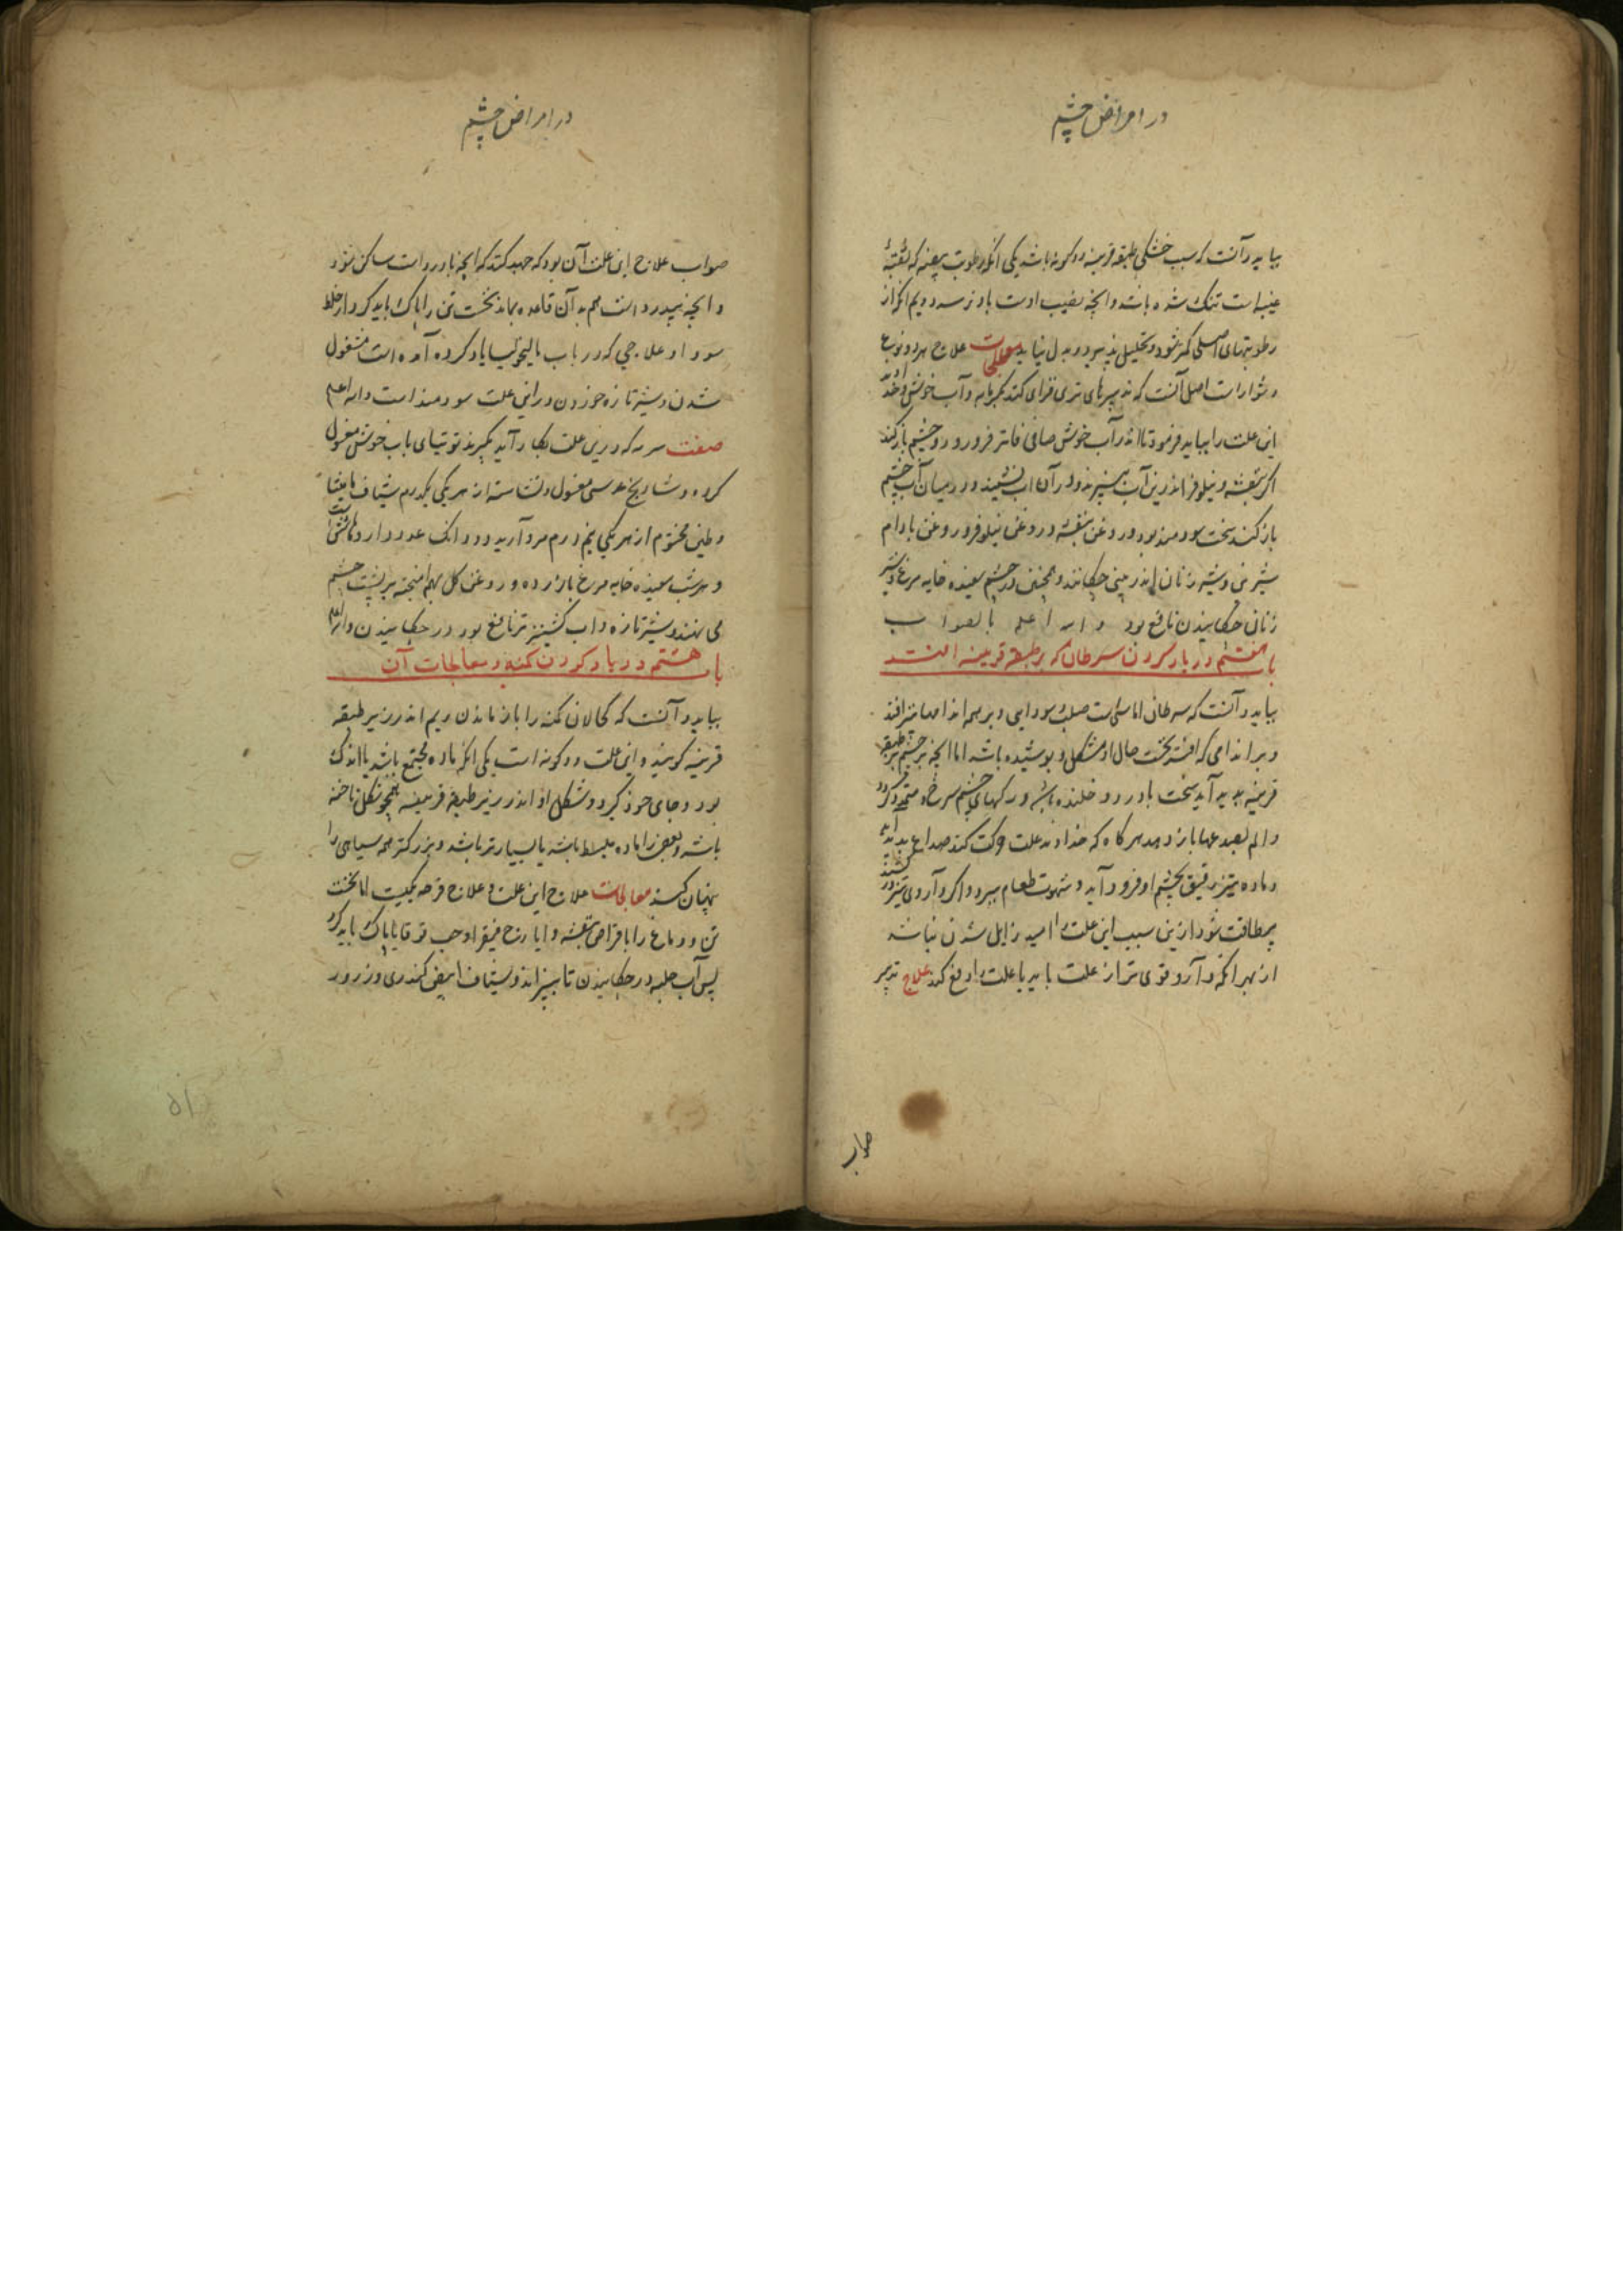 در امراض چشم
بباید دانست که سبب خشکی طبقه قرنیه دو گونه باشد یکی آنکه رطوبت بیضیه که ثقبهٔ
عنبیه است تنک شده باشد و آنچه نصیب اوست باو نرسد دویم آنکه از
رطوبتهای اصلی کمتر شود و تحلیل پذیرد و بدل نیابد معالجات علاج هر دو نوع
دشوار است اصل آنست که تدبیرهای تری فزای کنند بکرمابه و آب خوش و خداوند
این علت را بباید فرمود تا اندر آب خوش صافی فاتر فرو رود و چشم باز کند
اکر بنفشه و نیلوفر اندرین آب بپزند و در آن آب نشیند و در میان آب چشم
باز کند سخت سودمند بود و روغن بنفشه و روغن نیلوفر و روغن بادام
شیرین و شیر زنان اندر بینی چکانند و همچنین در چشم سفیده خایه مرغ و شیر
زنان چکانیدن نافع بود و الله اعلم بالصواب
باب هفتم در یاد کردن سرطان که بر طبقه قرنیه افتد
بباید دانست که سرطان اماسی است صلب سودایی و بر همه اندامها افتد
و بر اندامی که افتد نخست حال او مشکل و پوشیده باشد اما آنچه بر چشم بر طبقه
قرنیه پدید آید سخت با درد و خلنده باشد و رکهای چشم سرخ و ممتد کردد
و الم بصدغها باز دهد هر کاه که خداوند علت حرکت کند صداع پدید آید
و ماده تیز رقیق بچشم او فرود آید و شهوت طعام ببرد و اکر داروی تیز در کشند
بیطاقت شود ازین سبب این علت را امید زایل شدن نباشد
از بهر آنکه دارو قوی تر از علت باید یا علت را دفع کند علاج تدبیر
صواب
در امراض چشم
صواب علاج این علت آن بود که جهد کنند که آنچه با درد است ساکن شود
و آنچه بیدرد است هم بر آن قاعده بماند نخست تن را پاک باید کرد از خلط
سودا و علاجی که در باب مالیخولیا یاد کرده آمده است مشغول
شدن و شیر تازه خوردن در این علت سودمند است والله اعلم
صفت سرمه که درین علت بکار آید بکیرند توتیای باب خوش مغسول
کرده و شادنج عدسی مغسول و نشاسته از هر یکی یکدرم شیاف مامیثا
و طین مختوم از هر یکی نیم درم مروارید دو دانک
و هر شب سفیده خایه مرغ با زرده و روغن کل بهم امیخته بر پشت چشم
می نهند و شیر تازه و آب کشنیز تر نافع بود در چکانیدن والله اعلم
باب هشتم در یاد کردن کمنه و معالجات آن
بباید دانست که کحالان کمنه را باز ماندن ریم اندر زیر طبقه
قرنیه کویند و این علت دو کونه است یکی آنکه ماده مجتمع باشد یا اندک
بود و جای خود کیرد و شکل او اندر زیر طبقه قرنیه همچو شکل ناخنه
باشد و بعضی را ماده منبسط باشد یا بسیارتر باشد و بزرکتر همه سیاهی را
پنهان کند معالجات علاج این علت و علاج قرحه یکیست اما نخست
تن و دماغ را با قراص بنفشه و ایارج فیقرا و حب قوقایا پاک باید کرد
پس آب حلبه در چکانیدن تا بپزاند و شیاف ابیض کندری و زرور
۵۱